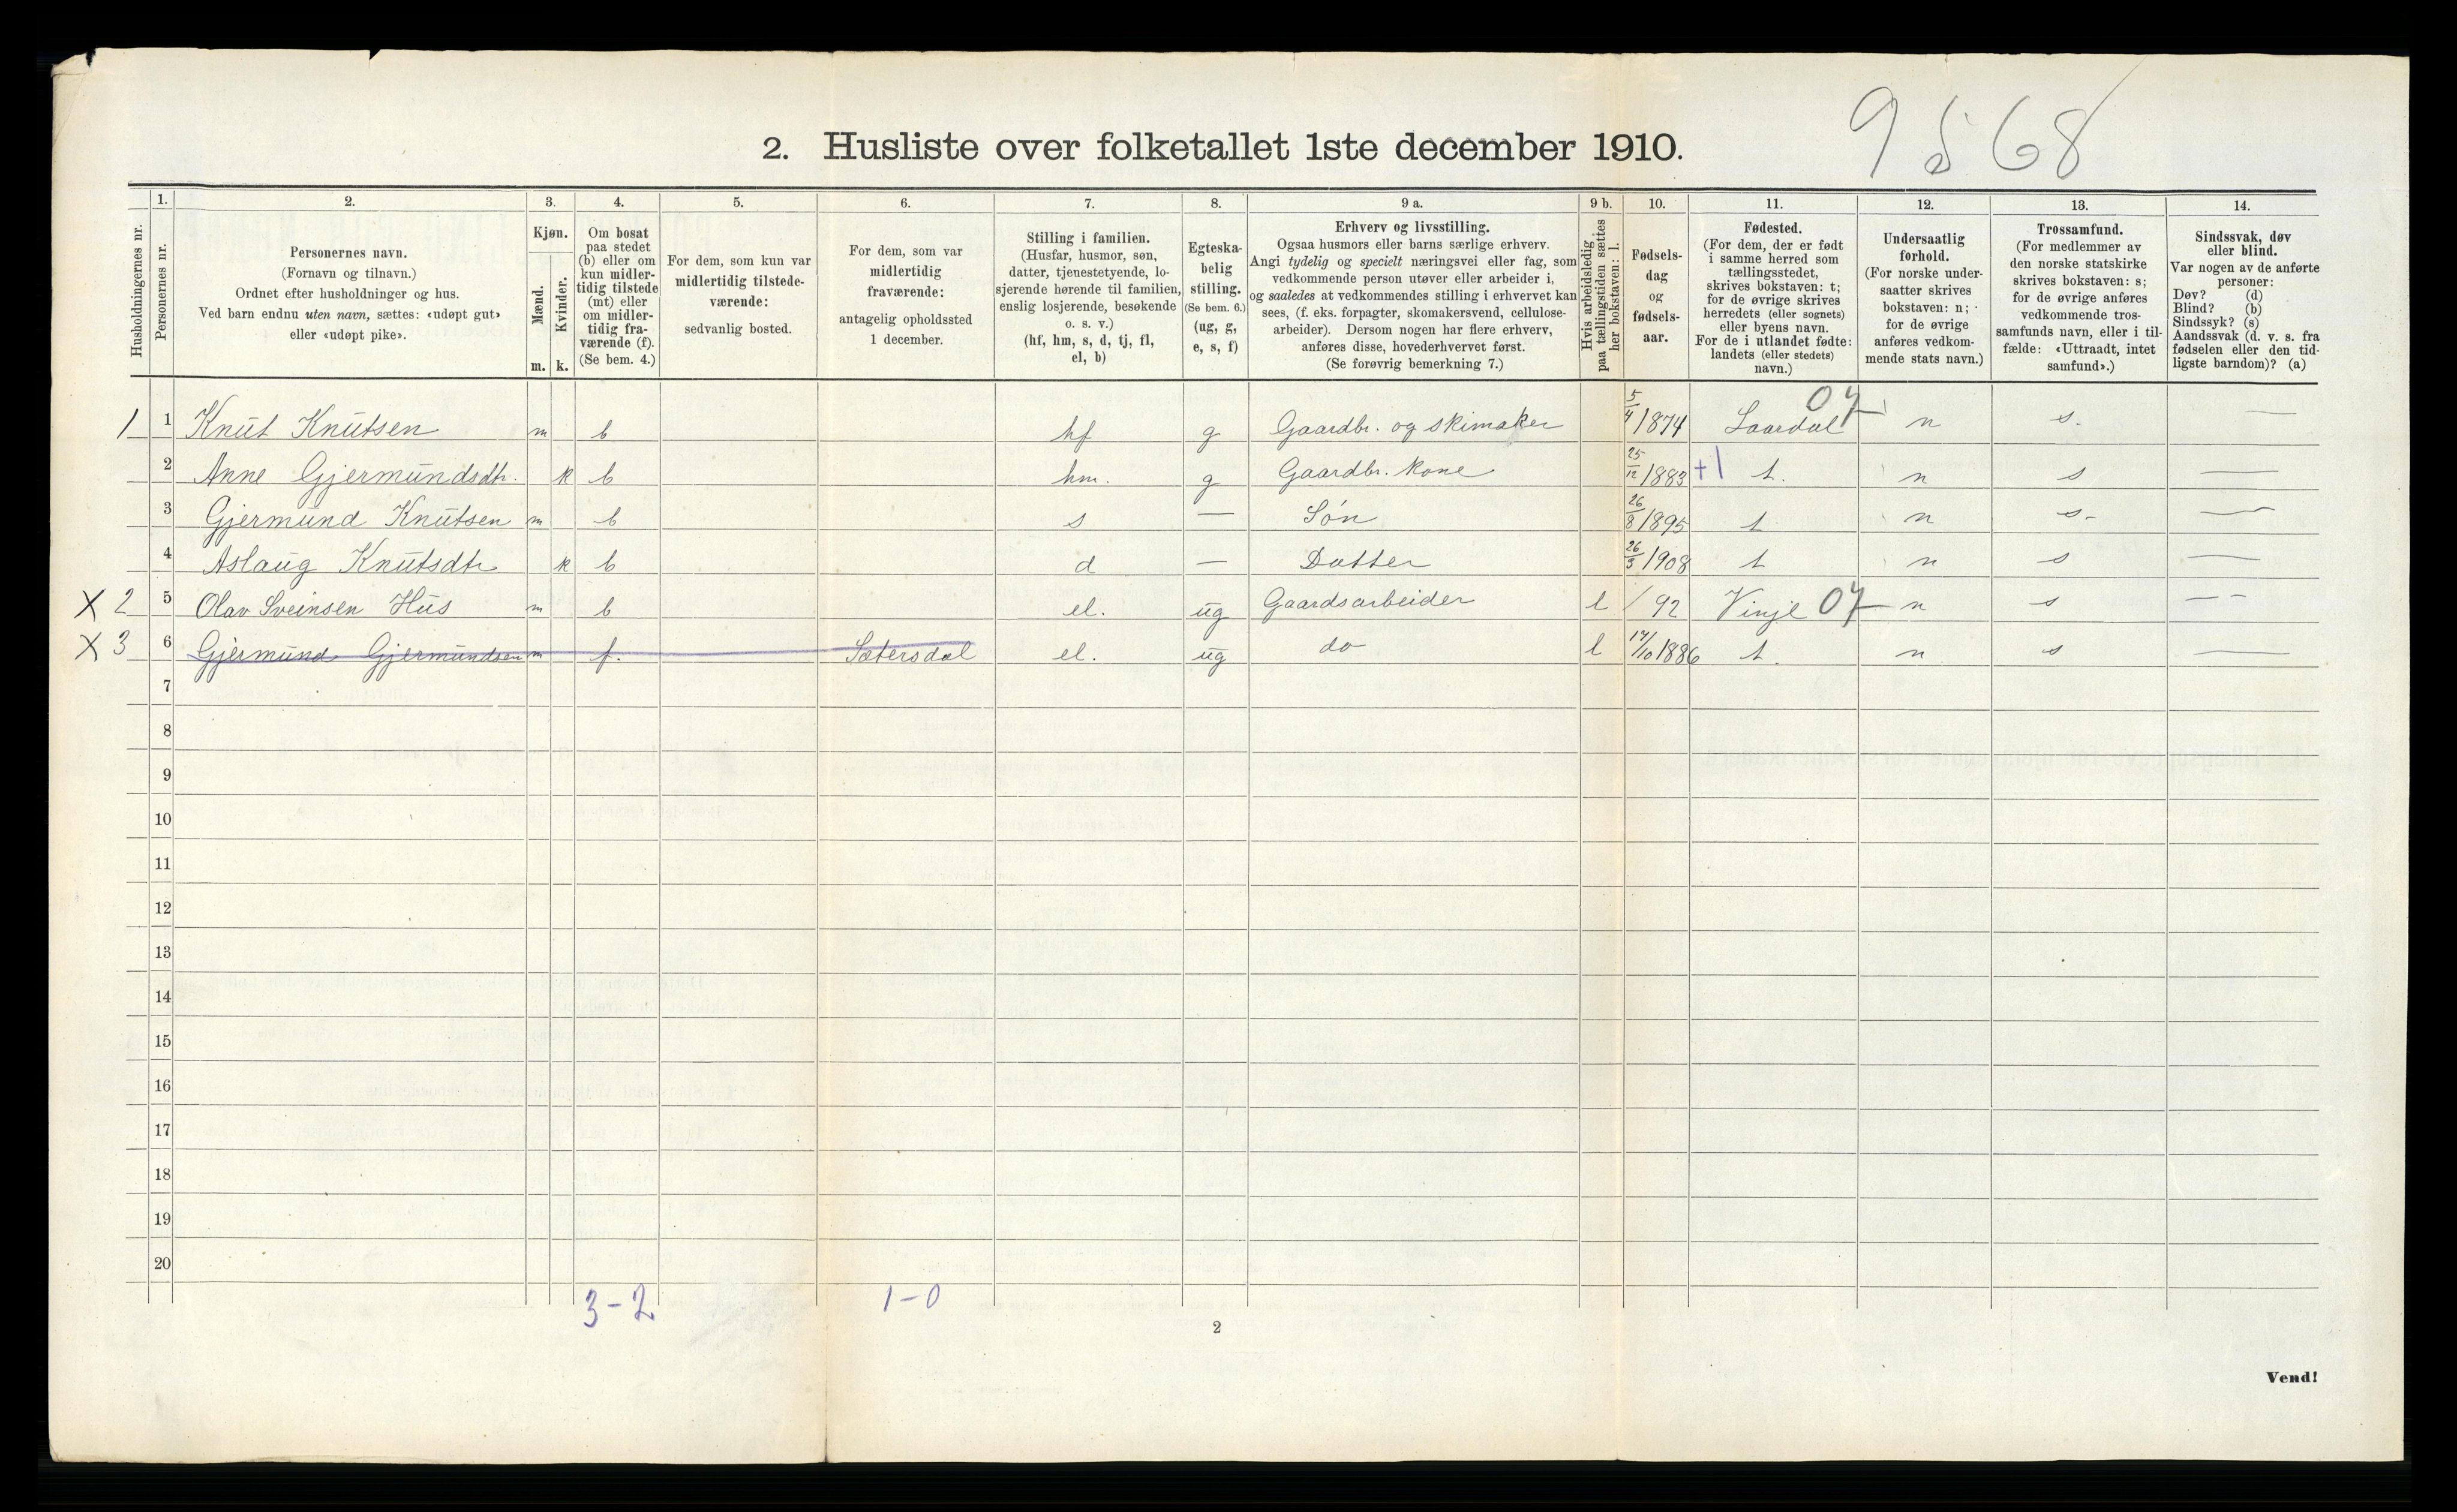 9568
2. Husliste over folketallet 1ste december 1910.
Husholdningernes nr.
1.
Personernes nr.
2.
Personernes navn.
(Fornavn og tilnavn.)
Ordnet efter husholdninger og hus.
Ved barn endnu uten navn, sættes: «udøpt gut»
eller «udøpt pike».
3.
Kjøn.
Mænd.
Kvinder.
m. k.
4.
Om bosat
paa stedet
(b) eller om
kun midler-
tidig tilstede
(mt) eller
om midler-
tidig fra-
værende (f).
(Se bem. 4.)
5.
For dem, som kun var
midlertidig tilstede-
værende:
sedvanlig bosted.
6.
For dem, som var
midlertidig
fraværende:
antagelig opholdssted
1 december.
7.
Stilling i familien.
(Husfar, husmor, søn,
datter, tjenestetyende, lo-
sjerende hørende til familien,
enslig losjerende, besøkende
o. s. v.)
(hf, hm, s, d, tj, fl,
el, b)
8.
Egteska-
belig
stilling.
(Se bem. 6.)
(ug, g,
e, s, f)
9 a.
Erhverv og livsstilling.
Ogsaa husmors eller barns særlige erhverv.
Angi tydelig og specielt næringsvei eller fag, som
vedkommende person utøver eller arbeider i,
og saaledes at vedkommendes stilling i erhvervet kan
sees, (f. eks. forpagter, skomakersvend, cellulose-
arbeider). Dersom nogen har flere erhverv,
anføres disse, hovederhvervet først.
(Se forøvrig bemerkning 7.)
9 b.
Hvis arbeidsledig
paa tællingstiden sættes
her bokstaven: l.
10.
Fødsels-
dag
og
fødsels-
aar.
11.
Fødested.
(For dem, der er født
i samme herred som
tællingsstedet,
skrives bokstaven: t;
for de øvrige skrives
herredets (eller sognets)
eller byens navn.
For de i utlandet fødte:
landets (eller stedets)
navn.)
12.
Undersaatlig
forhold.
(For norske under-
saatter skrives
bokstaven: n;
for de øvrige
anføres vedkom-
mende stats navn.)
13.
Trossamfund.
(For medlemmer av
den norske statskirke
skrives bokstaven: s;
for de øvrige anføres
vedkommende tros-
samfunds navn, eller i til-
fælde: «Uttraadt, intet
samfund».)
14.
Sindssvak, døv
eller blind.
Var nogen av de anførte
personer:
Døv? (d)
Blind? (b)
Sindssyk? (s)
Aandssvak (d. v. s. fra
fødselen eller den tid-
ligste barndom)? (a)
1 1 Knut Knutsen m b hf g Gaardbr. og skimaker 5/4 1874 Laardal 07 n s. —
2 Anne Gjermundsdtr. k b hm. g Gaardbr. kone 25/12 1883 +1 t. n s —
3 Gjermund Knutsen m b s — Søn 26/8 1895 t n s- —
4 Aslaug Knutsdtr k b d — Datter 26/3 1908 t n s —
X 2 5 Olav Sveinsen Hus m b el. ug Gaardsarbeider l / 92 Vinje 07 n s — -
X 3 6 Gjermund Gjermundsen m f. Sætersdal el. ug do l 14/10 1886 t. n s —
7
8
9
10
11
12
13
14
15
16
17
18
19
20
3-2 1-0
2
Vend!